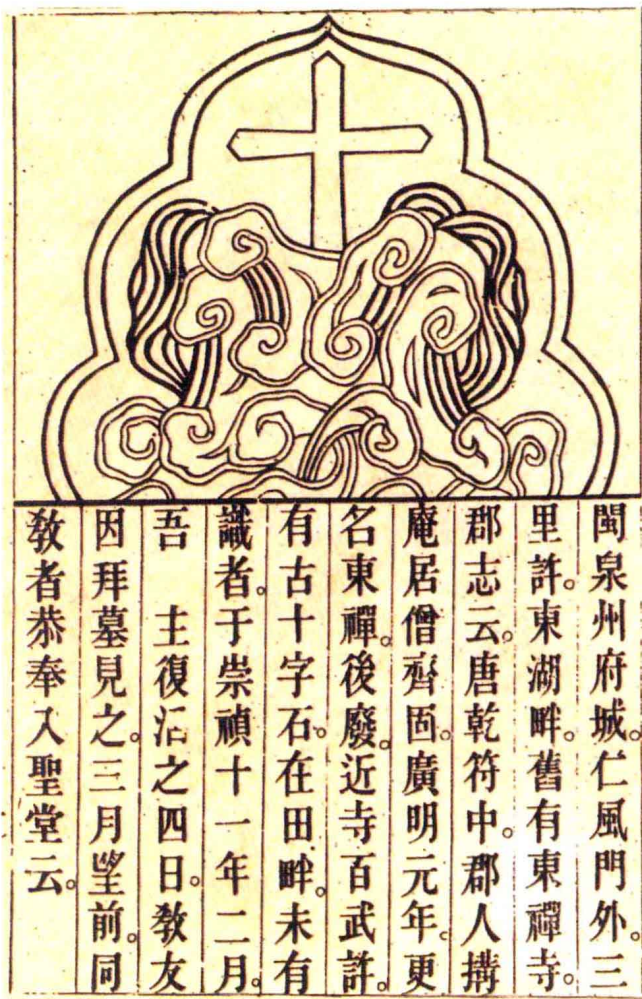 閩泉州府城。仁風門外。三
里許。東湖畔。舊有東禪寺。
郡志云。唐乾符中。郡人搆
庵居僧齊固。廣明元年。更
名東禪。後廢。近寺百武許。
有古十字石。在田畔。未有
識者。于崇禎十一年二月。
吾　主復活之四日。敎友
因拜墓見之。三月望前。同
敎者恭奉入聖堂云。